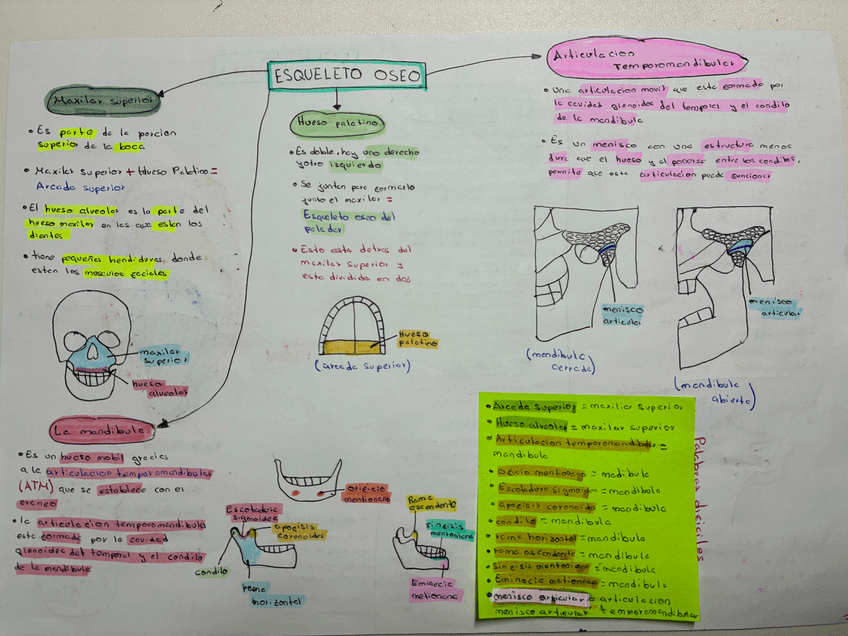 ESQUELETO OSEO
Maxilar superior
• Es parte de la porcion
superior de la boca
• Maxilar superior + Hueso Palatino =
Arcada superior
• El hueso alveolar es la parte del
hueso maxilar en las que estan los
dientes
• tiene pequeñas hendiduras, donde
estan los musculos faciales
maxilar
superior
hueso
alveolar
Hueso palatino
• Es doble, hay uno derecho
y otro izquierdo
• Se juntan para formarlo
junto el maxilar =
Esqueleto oseo del
paladar
• Esto esta detras del
maxilar superior y
esta dividido en dos
Hueso
palatino
(arcada superior)
Articulacion
Temporomandibular
• Una articulacion movil que esta formada por
la cavidad glenoidea del temporal y el condilo
de la mandibula
• Es un menisco con una estructura menos
dura que el hueso y al ponerse entre los condilos,
permite que esta articulacion pueda funcionar
menisco
articular
(mandibula
cerrada)
menisco
articular
(mandibula
abierta)
La mandibula
• Es un hueso mobil gracias
a la articulacion temporomandibular
(ATM) que se establece con el
craneo
• la articulacion temporomandibula
esta formada por la cavidad
glenoidea del temporal y el condilo
de la mandibula
Orificio
mentoniano
Escotadura
sigmoidea
apofisis
coronoides
condilo
rama
horizontal
Rama
ascendente
sinfisis
mentoniana
Eminecia
metionena
• Arcada superior = maxilior superior
• Hueso alveolar = maxilar superior
• Articulacion temporomandibular =
mandibula
• Oficio mentioneno = madibula
• Escotadura sigmoide = mandibula
• apofisis coronoides = mandibula
• condilo = mandibula
• rama horizontal = mandibula
• rama ascendente = mandibula
• sinfisis mentoniana = mandibula
• Eminacia metionena = mandibula
• menisco articular = articulacion
menisco articular temporomandibular
Palabras dificiles